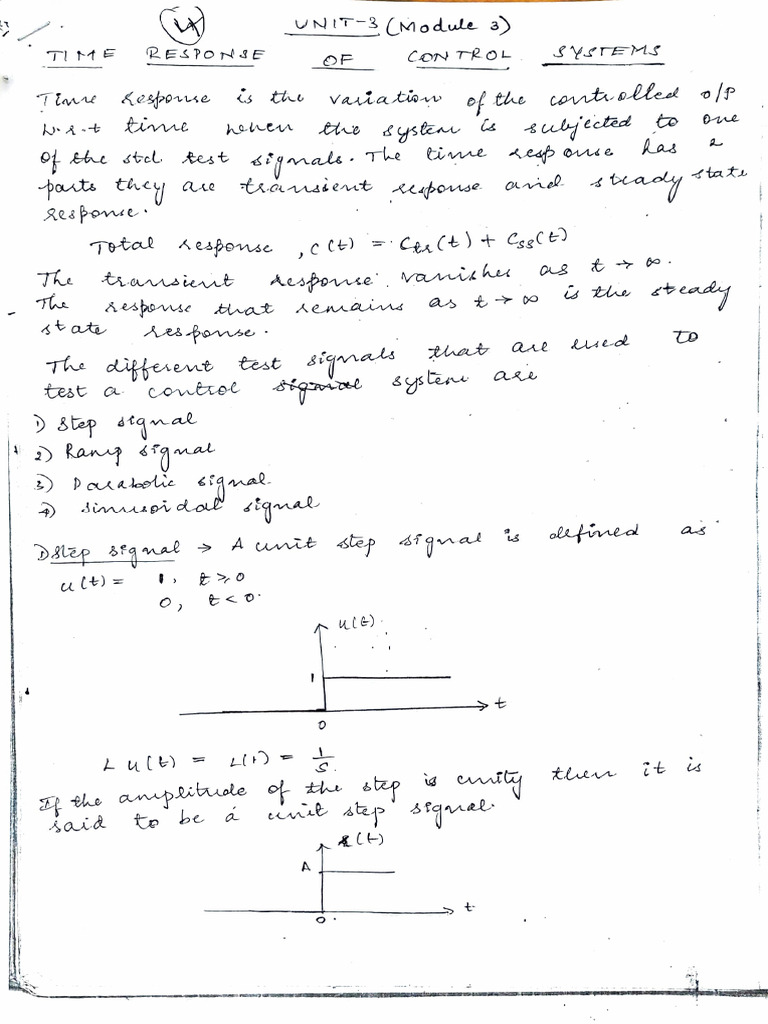 UNIT-3 (Module 3)
TIME RESPONSE OF CONTROL SYSTEMS
Time response is the variation of the controlled o/p
w.r.t time when the system is subjected to one
of the std. test signals. The time response has 2
parts they are transient response and steady state
response.
Total response, c(t) = Ctr(t) + Css(t)
The transient response vanishes as t → ∞.
The response that remains as t → ∞ is the steady
state response.
The different test signals that are used to
test a control signal system are
1) Step signal
2) Ramp signal
3) Parabolic signal
4) Sinusoidal signal
1) Step signal → A unit step signal is defined as
u(t) = 1, t ≥ 0
0, t < 0.
u(t)
1
t
0
L u(t) = L(1) = 1/S.
If the amplitude of the step is unity then it is
said to be a unit step signal.
r(t)
A
t
0